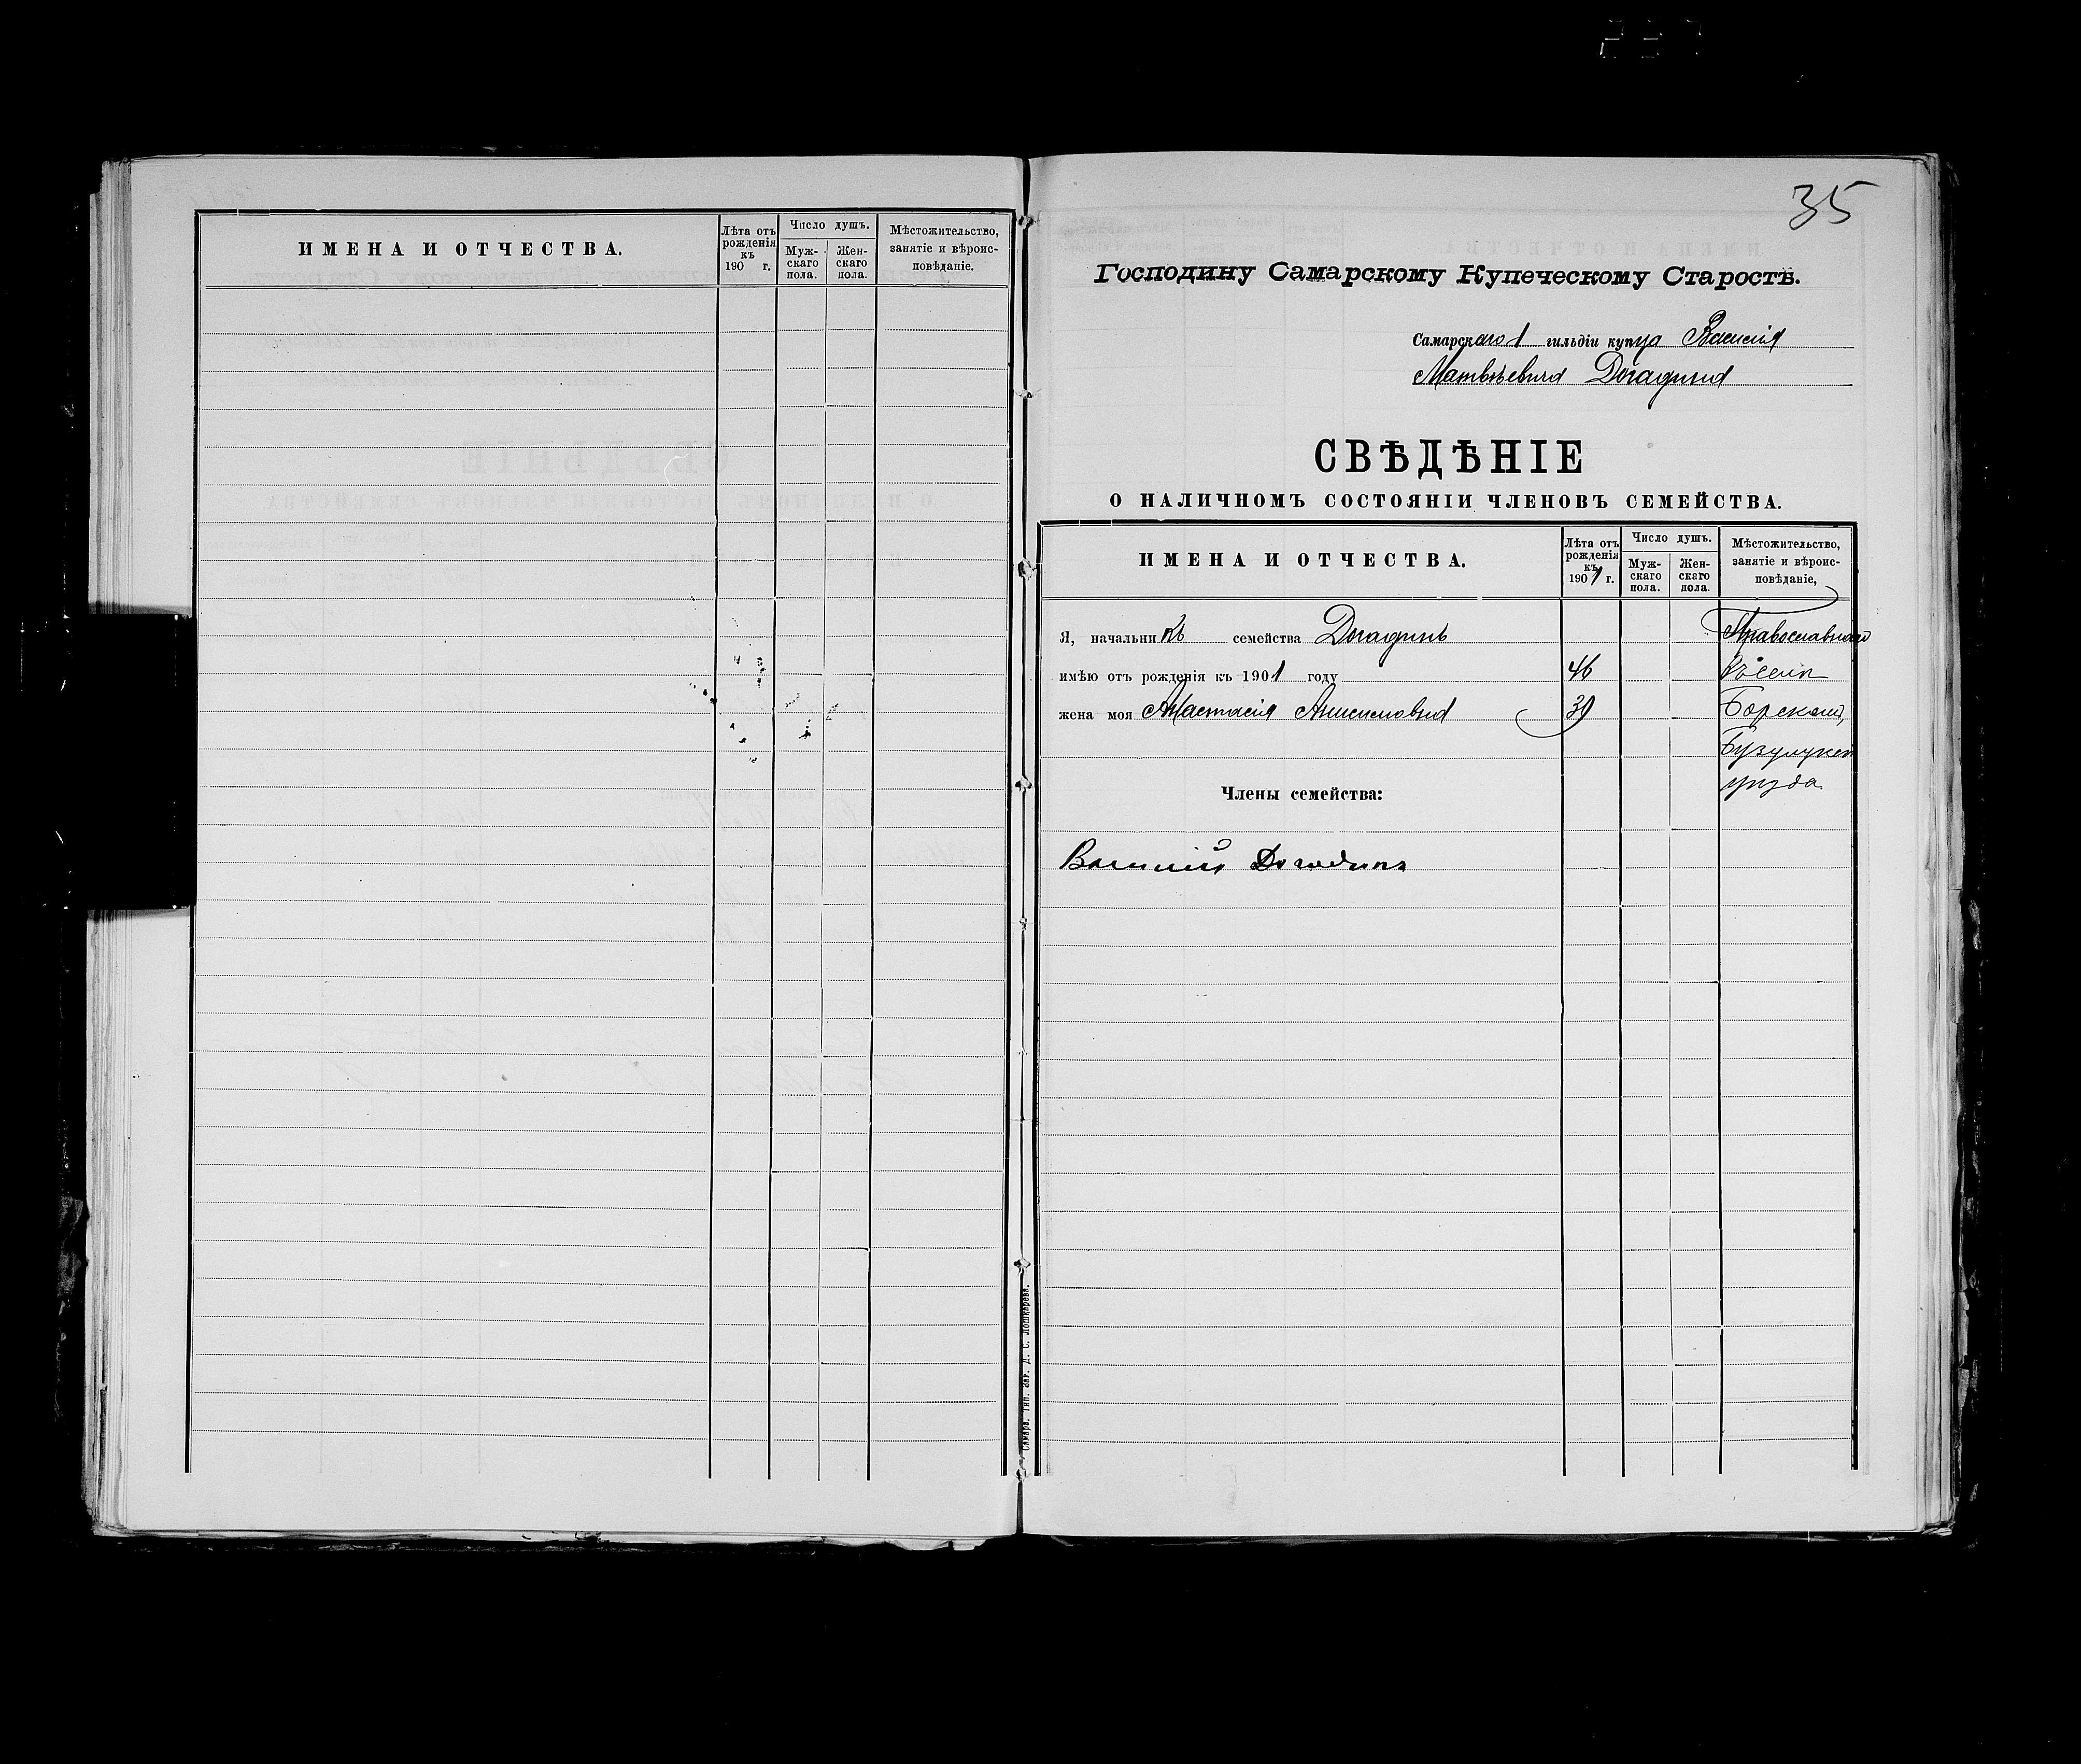 ИМЕНА И ОТЧЕСТВА.
Лѣта отъ рожденія къ 190 г.
Число душъ.
Мужскаго пола.
Женскаго пола.
Мѣстожительство, занятіе и вѣроисповѣданіе.
35
Господину Самарскому Купеческому Старостѣ.
Самарскаго 1 гильдіи купца Василія
Матвѣевича Догадина
СВѢДѢНІЕ
О НАЛИЧНОМЪ СОСТОЯНІИ ЧЛЕНОВЪ СЕМЕЙСТВА.
ИМЕНА И ОТЧЕСТВА.
Лѣта отъ рожденія къ 1901 г.
Число душъ.
Мужскаго пола.
Женскаго пола.
Мѣстожительство, занятіе и вѣроисповѣданіе,
Я, начальникъ семейства Догадинъ
Православнаго
имѣю отъ рожденія къ 1901 году 46
жена моя Анастасія 39
Борском,
Бузулукск
уѣзда
Члены семейства:
Василий Догадинъ
Самара. Тип. авг. Д. С. Лошкарева.